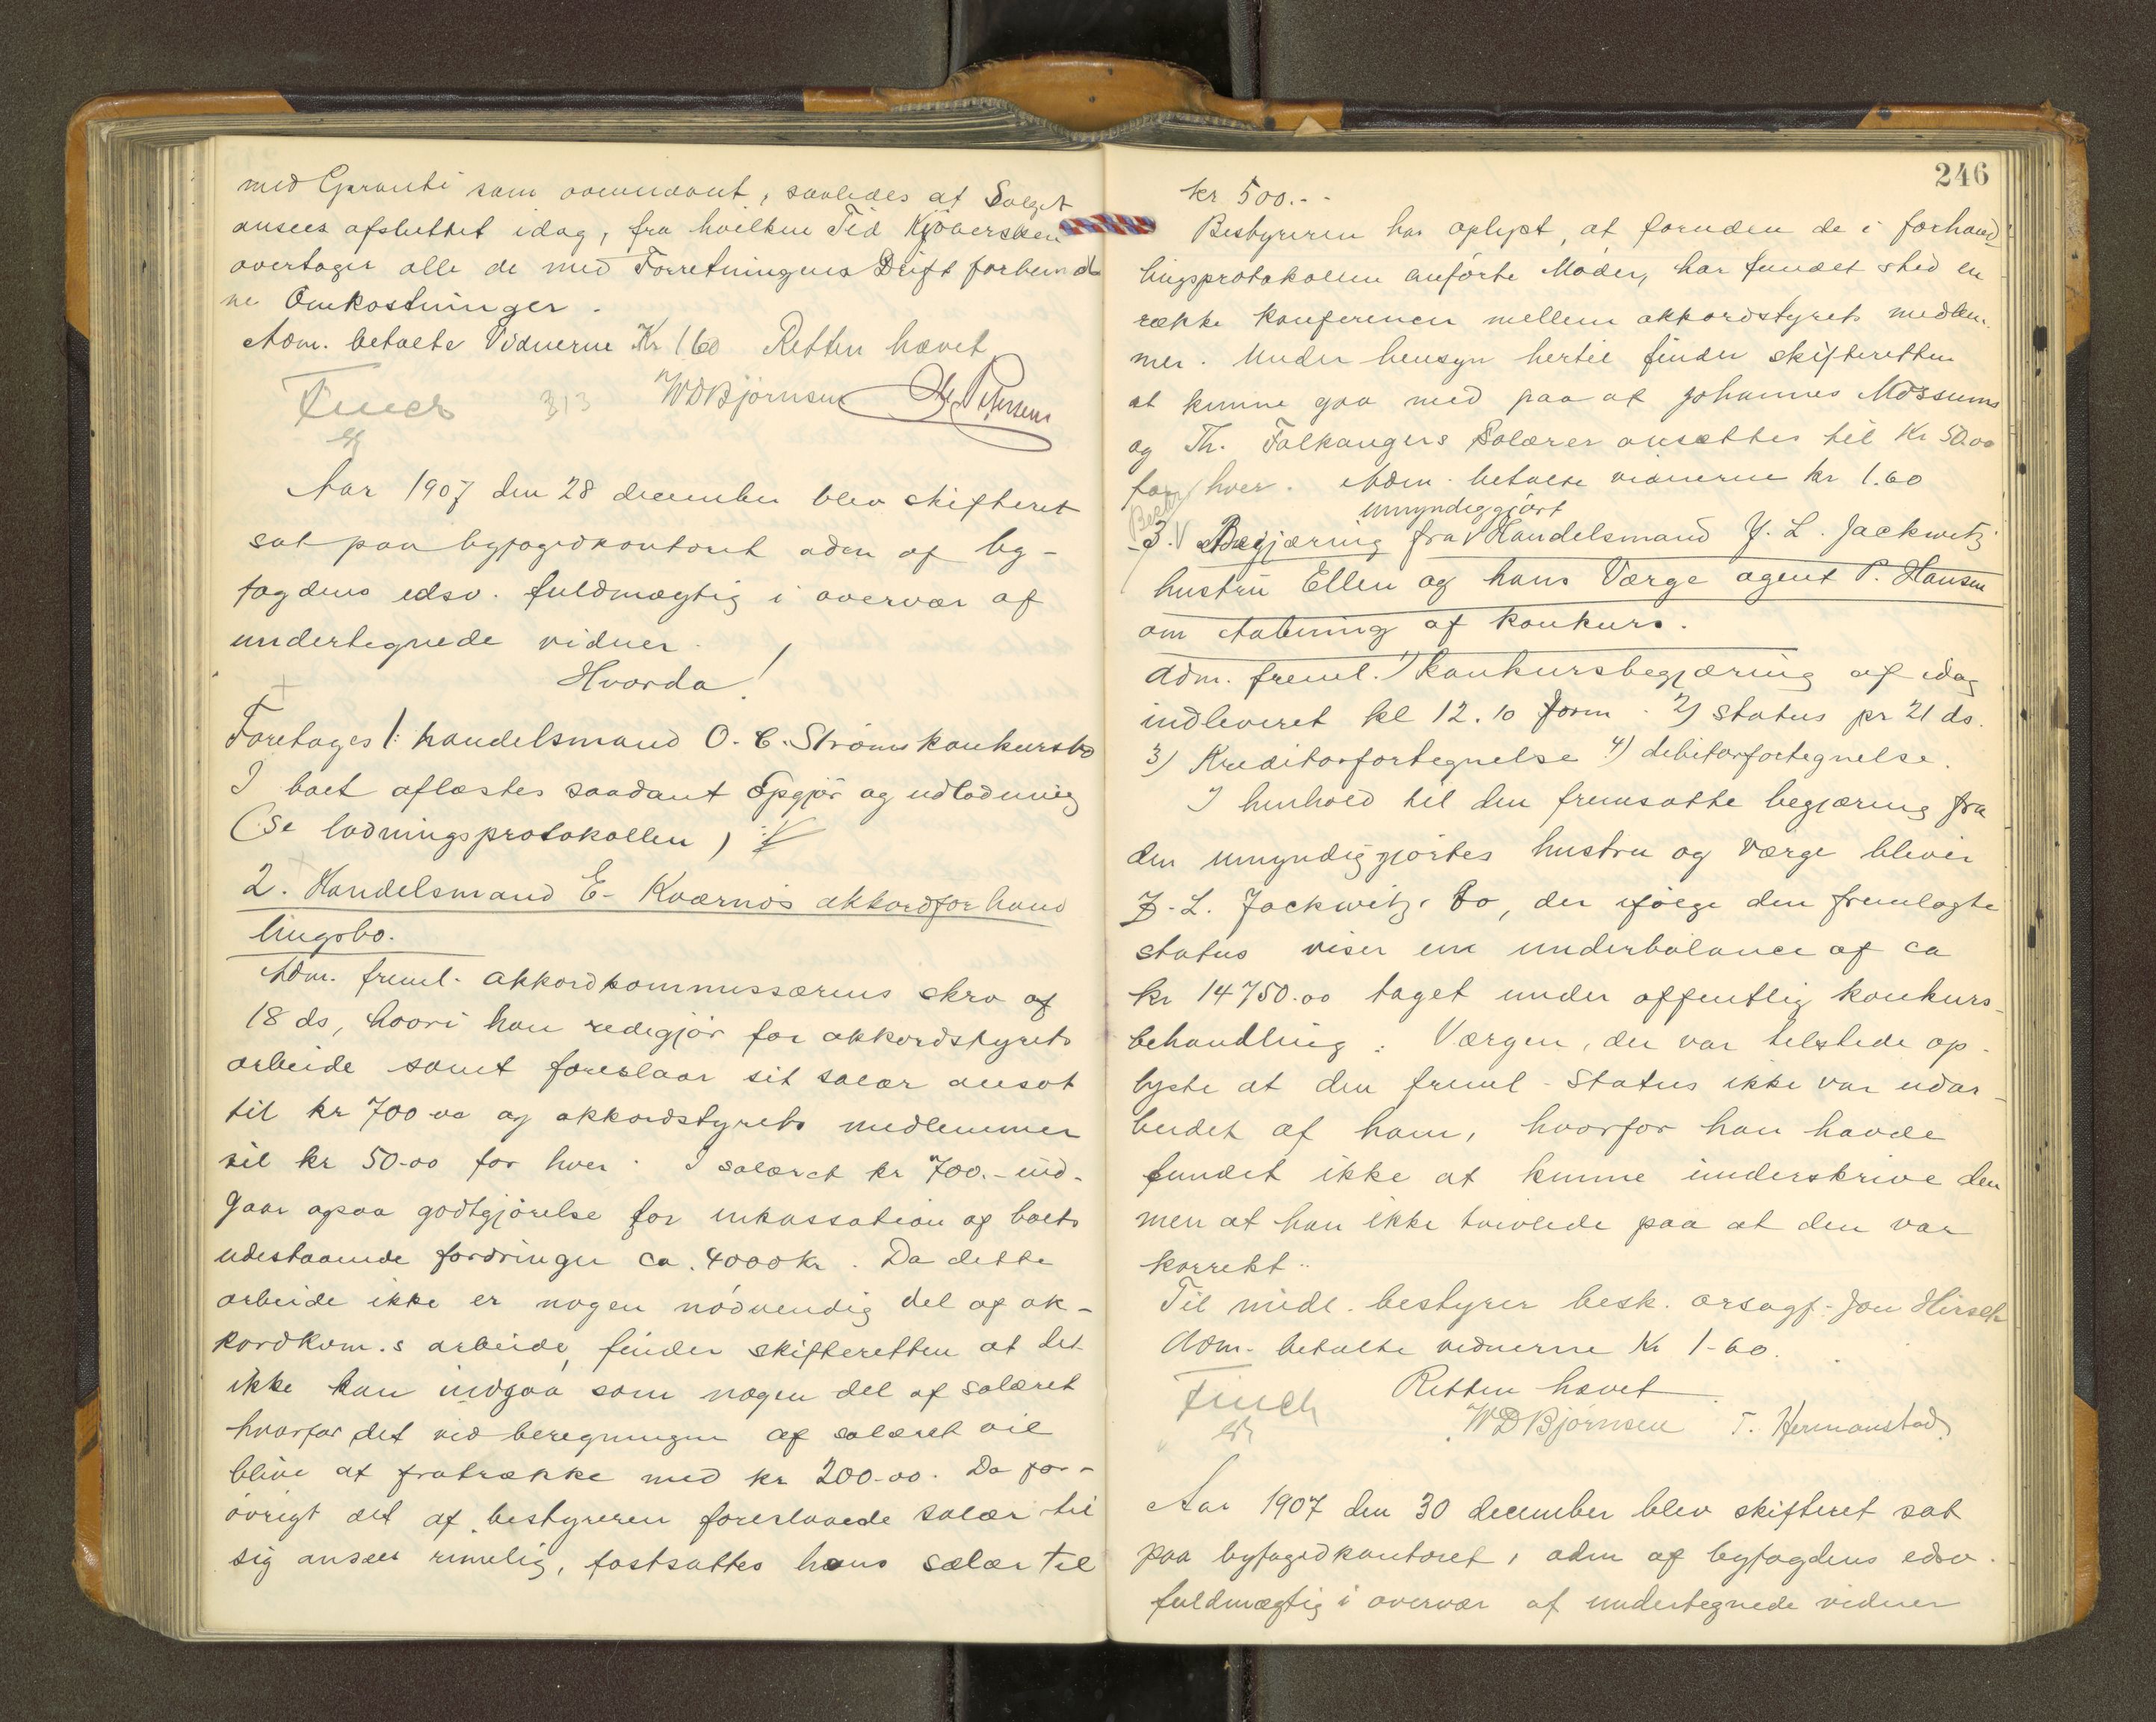 med Garanti som ovennævnt, saaledes at Salget
ansees afsluttet idag, fra hvilken Tid Kjøbersken
overtager alle de med Forretningens Drift forbund
ne Omkostninger.
Adm. betalte Vidnerne Kr 1.60 Retten hævet
Finch 313 WDBjørnsen Petersen
Aar 1907 den 28 december blev skifteret
sat paa byfogedkontoret adm af by-
fogdens edsv. fuldmægtig i overvær af
undertegnede vidner.
Hvorda!
Foretoges 1: handelsmand O. C. Strøms konkursbo
I boet aflæstes saadant Opgjør og udlodning
(Se lodningsprotokollen)
2. Handelsmand E. Kværnøs akkordforhand
lingsbo.
Adm. freml. akkordkommissærens skrv af
18 ds, hvori han redegjør for akkordstyrets
arbeide samt foreslaar sit salær ansat
til kr 700.00 og akkordstyrets medlemmer
til kr 50.00 for hver. I salæret kr 700.- ind-
gaar ogsaa godtgjørelse for inkassation af boets
udestaaende fordringer ca. 4000 kr. Da dette
arbeide ikke er nogen nødvendig del af ak-
kordkom.s arbeide, finder skifteretten at det
ikke kan indgaa som nogen del af salæret
hvorfor det ved beregningen af salæret vil
blive at fratrække med kr 200.00. Da for-
øvrigt det af bestyreren foreslaaede salær til
sig ansees rimelig, fastsattes hans salær til
246
kr 500.--
Bestyreren har oplyst, at foruden de i forhand
lingsprotokollen anførte Møder, har fundet sted en
række konferencer mellem akkordstyrets medlem-
mer. Under hensyn hertil finder skifteretten
at kunne gaa med paa at Johannes Mossums
og Th. Falkangers Salærer ansættes til Kr 50.00
for hver. Adm. betalte vidnerne kr 1.60
umyndiggjort
3. Begjæring fra Handelsmand J. L. Jackwitz
hustru Ellen og hans Værge agent P. Hansen
om Aabning af konkurs.
Adm. freml. 1) konkursbegjæring af idag
indleveret kl 12.10 form. 2) Status pr 21 ds.
3) Kreditorfortegnelse 4) debitorfortegnelse.
I henhold til den fremsatte begjæring fra
den umyndiggjortes hustru og Værge blever
J. L. Jackwitz. bo, der ifølge den fremlagte
status viser en underbalance af ca
kr 14750.00 taget under offentlig konkurs-
behandling: Værgen, der var tilstede op-
lyste at den freml. Status ikke var udar-
beidet af ham, hvorfor han havde
fundet ikke at kunne underskrive den
men at han ikke tvivlede paa at den var
korrekt.
Til midl. bestyrer besk. orsagf. Jon Hirsch
Adm. betalte vidnerne Kr 1-60.
Retten hævet
Finch WDBjørnsen T. Hermanstad
Aar 1907 den 30 december blev skifteret sat
paa byfogedkontoret, adm af byfogdens edsv.
fuldmægtig i overvær af undertegnede vidner